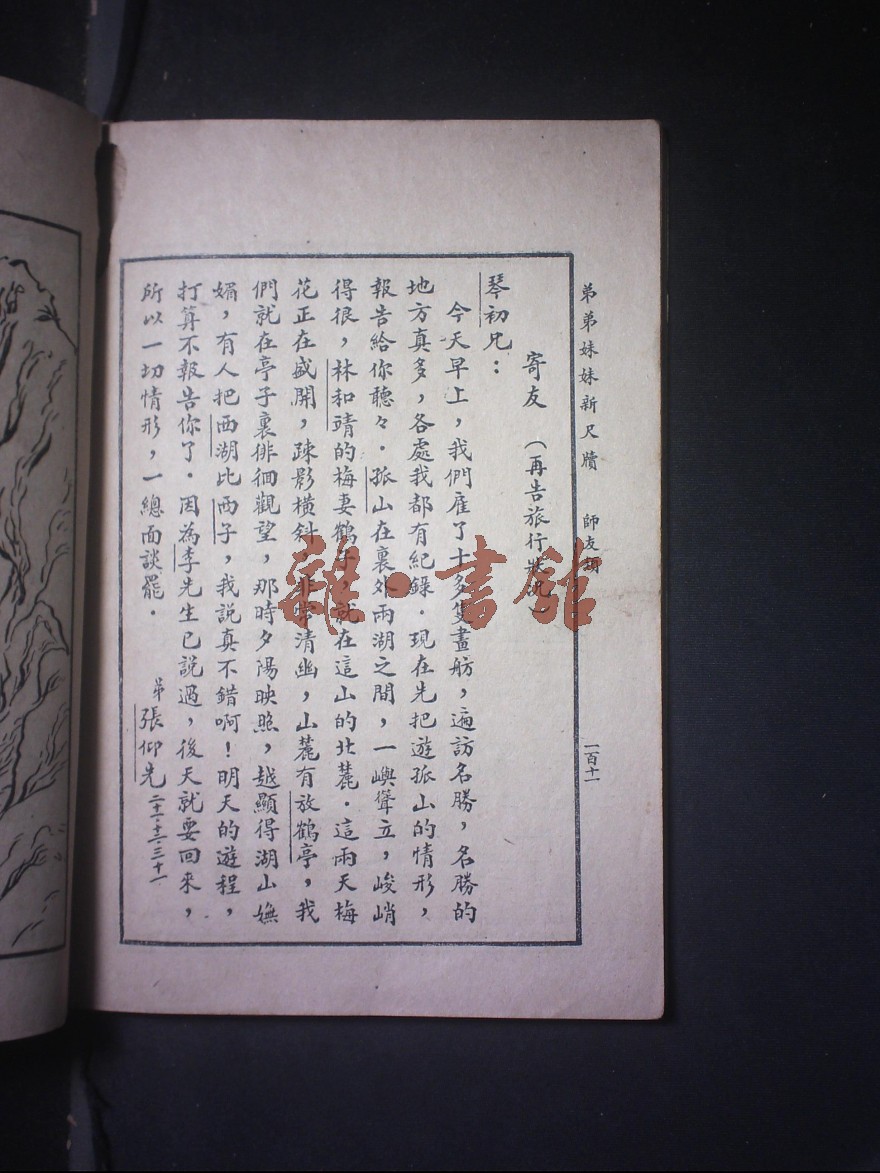 弟弟妹妹新尺牘　師友類　一百十一
寄友　（再告旅行狀況）
琴初兄：
今天早上，我們雇了十多隻畫舫，遍訪名勝，名勝的
地方真多，各處我都有紀錄．現在先把遊孤山的情形，
報告給你聽々．孤山在裏外兩湖之間，一嶼聳立，峻峭
得很，林和靖的梅妻鶴子，就在這山的北麓．這兩天梅
花正在盛開，疎影橫斜，非常清幽，山麓有放鶴亭，我
們就在亭子裏徘徊觀望，那時夕陽映照，越顯得湖山嫵
媚，有人把西湖比西子，我説真不錯啊！明天的遊程，
打算不報告你了．因為李先生已説過，後天就要回來，
所以一切情形，一總面談罷．
弟　張仰先　二十一．十二．三十一
雜·書館